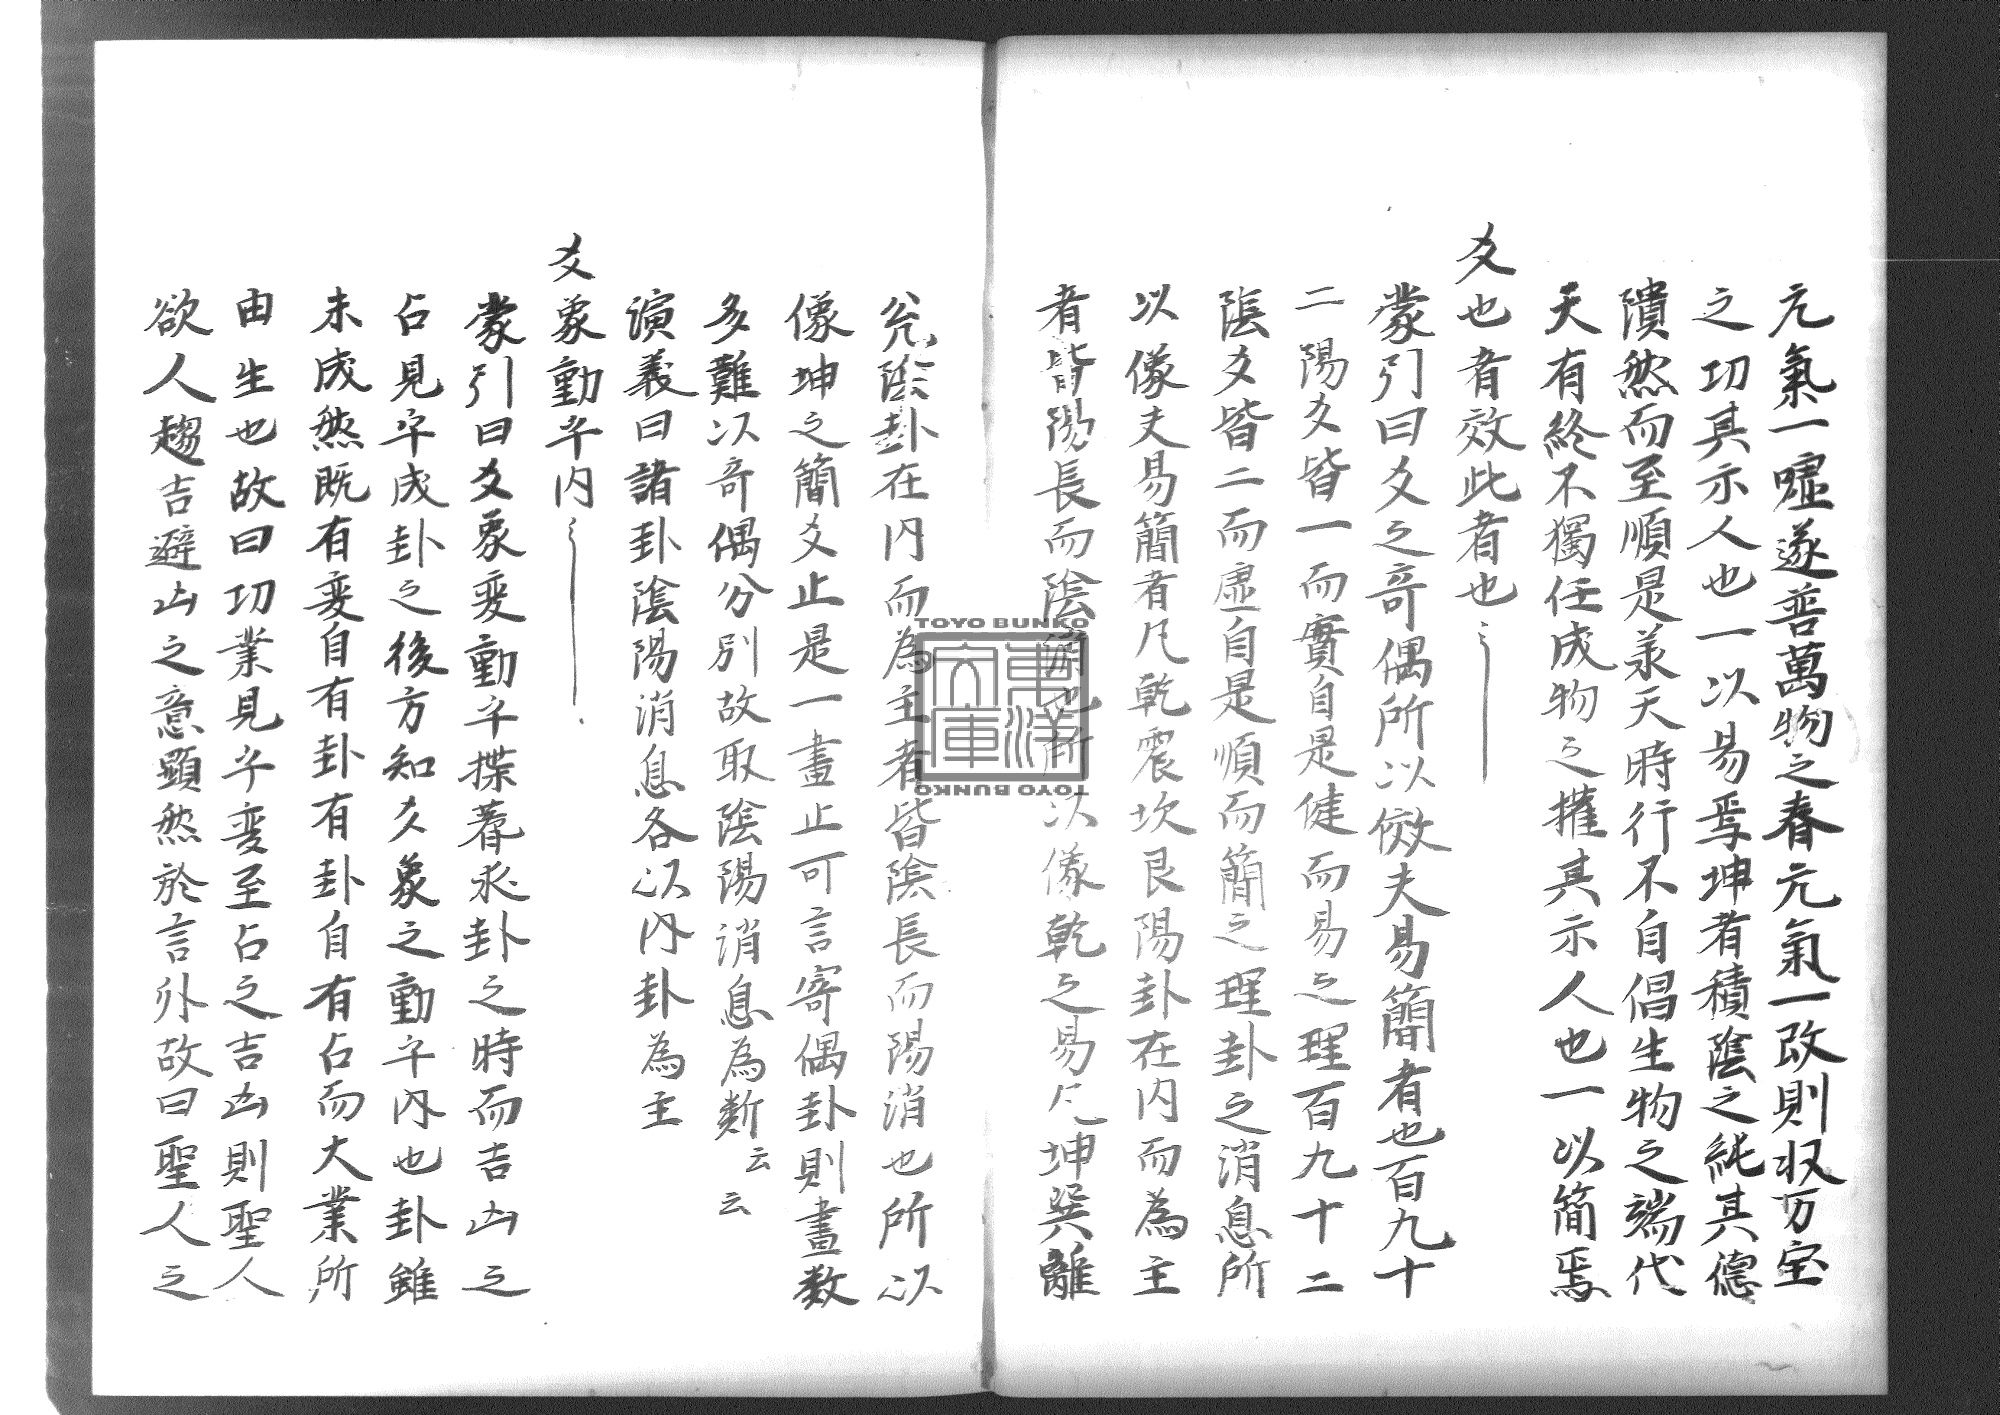 元氣一噓遂普萬物之春元氣一改則収万宝
之功其示人也一以易焉坤者積陰之純其德
隤然而至順是羕天時行不自倡生物之端代
天有終不獨任成物之㩁其示人也一以簡焉
爻也者效此者也
蒙引曰爻之竒偶所以傚夫易簡者也百九十
二陽爻皆一而實自是健而易之理百九十二
陰爻皆二而虛自是順而簡之理卦之消息所
以像夫易簡者凡乾震坎艮陽卦在内而為主
者皆陽長而陰消也所以像乾之易凡坤巽離
兊陰卦在内而為主者皆陰長而陽消也所以
像坤之簡爻止是一畫止可言竒偶卦則畫数
多難以奇偶分別故取陰陽消息為断云云
演義曰諸卦陰陽消息各以内卦為主
爻象動乎内
蒙引曰爻象変動乎揲蓍求卦之時而吉凶之
占見乎成卦之後方知爻象之動乎内也卦雖
未成然既有変自有卦有卦自有占而大業所
由生也故曰功業見乎変至占之吉凶則聖人
欲人趨吉避凶之意顕然於言外故曰聖人之
TOYO BUNKO
東洋文庫
TOYO BUNKO